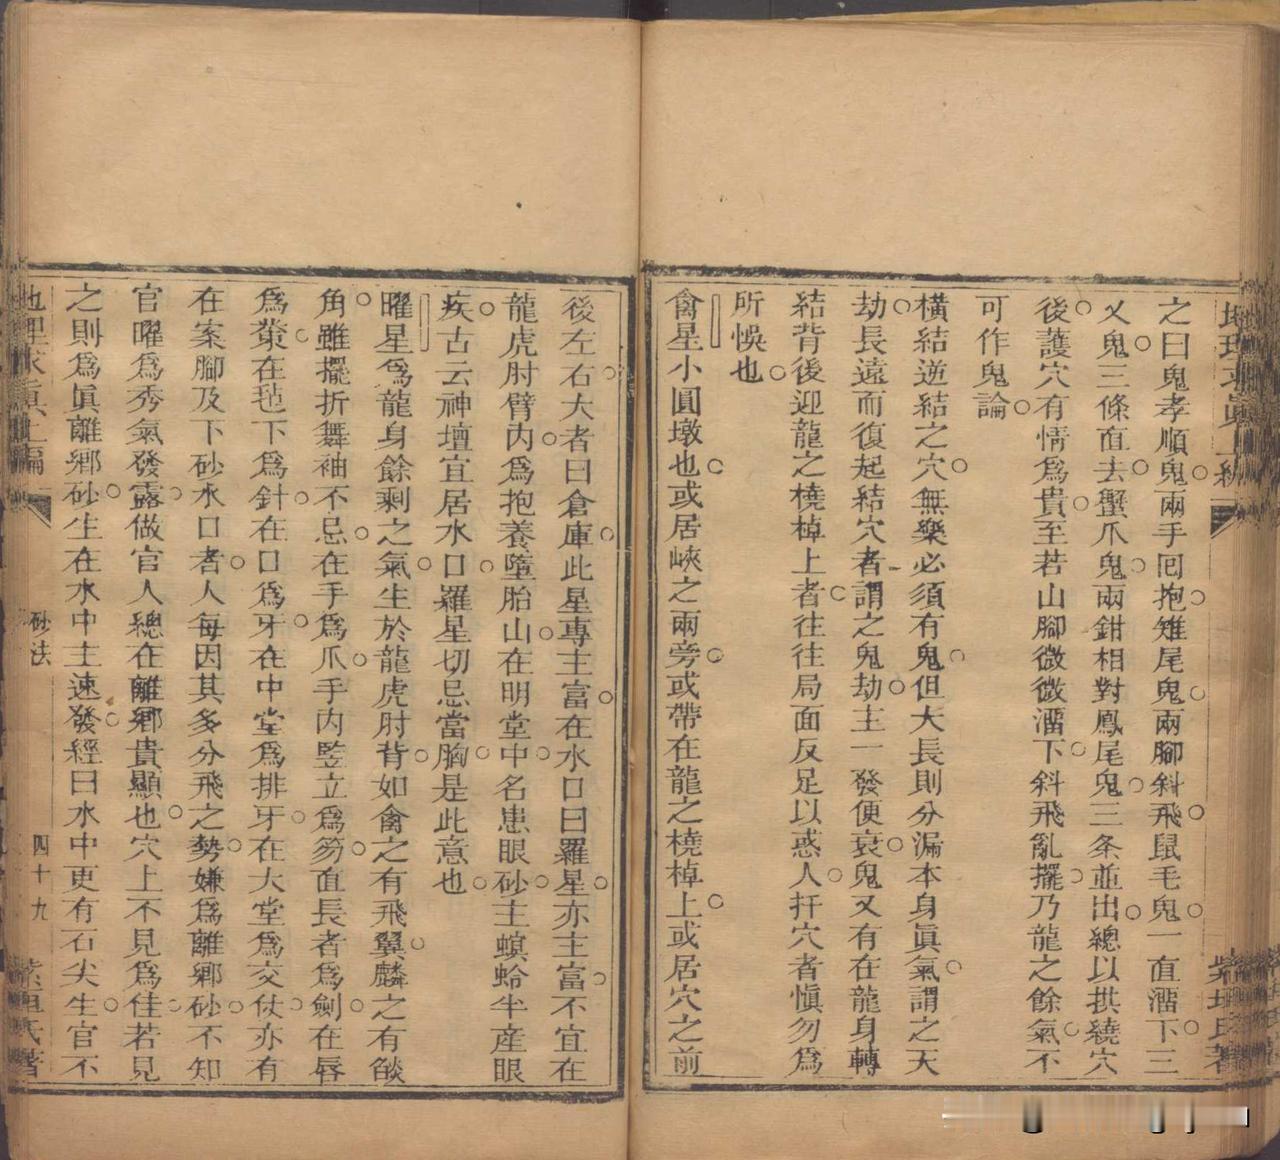 之曰鬼孝順鬼兩手囘抱雉尾鬼兩腳斜飛鼠毛鬼一直溜下三
乂鬼三條直去蟹爪鬼兩鉗相對鳳尾鬼三条並出總以拱繞穴
後護穴有情爲貴至若山腳微微溜下斜飛亂擺乃龍之餘氣不
可作鬼論
橫結逆結之穴無樂必須有鬼但大長則分漏本身眞氣謂之天
劫長遠而復起結穴者謂之鬼劫主一發便衰鬼又有在龍身轉
結背後迎龍之橈棹上者往往局面反足以惑人扦穴者愼勿爲
所悞也
禽星小圓墩也或居峽之兩旁或帶在龍之橈棹上或居穴之前
後左右大者曰倉庫此星專主富在水口曰羅星亦主富不宜在
龍虎肘臂內爲抱養墮胎山在明堂中名患眼砂主螟蛉半産眼
疾古云神壇宜居水口羅星切忌當胸是此意也
曜星爲龍身餘剩之氣生於龍虎肘背如禽之有飛翼麟之有燄
角雖擺折舞袖不忌在手爲爪手内竪立爲笏直長者爲劍在唇
爲在毡下爲針在口爲牙在中堂爲排牙在大堂爲交仗亦有
在案腳及下砂水口者人每因其多分飛之勢嫌爲離鄉砂不知
官曜爲秀氣發露做官人總在離鄉貴顯也穴上不見爲佳若見
之則爲眞離鄉砂生在水中主速發經曰水中更有石尖生官不
地理求眞上編
砂法
四十九
紫坦氏著